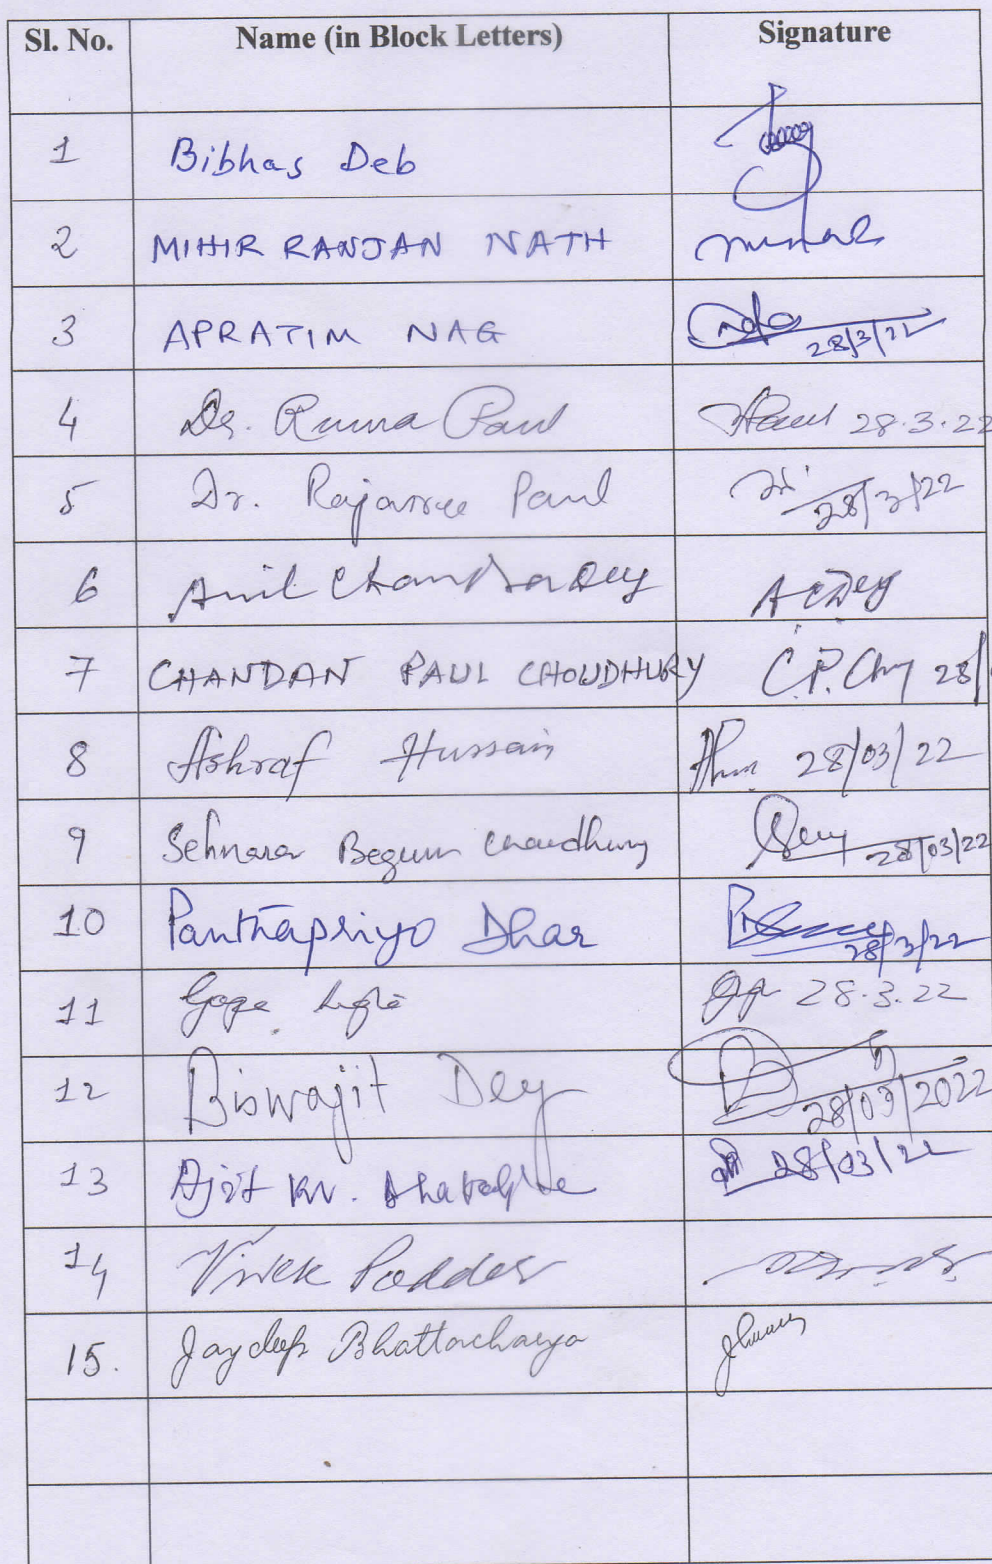 Sl. No. Name (in Block Letters) Signature
1 Bibhas Deb
2 MIHIR RANJAN NATH
3 APRATIM NAG 28/3/22
4 Dr. Ruma Paul Paul 28.3.22
5 Dr. Rajasree Paul 28/3/22
6 Anil Chandra Dey A C Dey
7 CHANDAN PAUL CHOUDHURY C.P. 28/
8 Ashraf Hussain 28/03/22
9 Sehnara Begum Choudhury 28/03/22
10 Panthapriyo Dhar 28/3/22
11 28.3.22
12 Biswajit Dey 28/03/2022
13 Ajit Kr. 28/03/22
14 Vivek Poddar
15. Jaydeep Bhattacharya